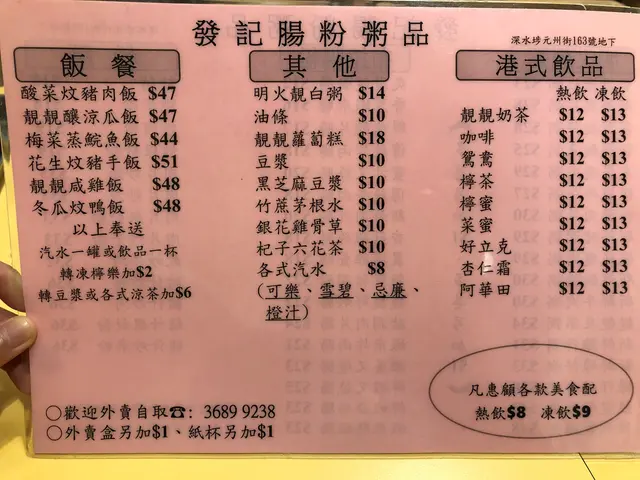 發記腸粉粥品
深水埗元州街163號地下
飯餐
酸菜炆豬肉飯 $47
靚靚釀涼瓜飯 $47
梅菜蒸鯇魚飯 $44
花生炆豬手飯 $51
靚靚咸雞飯 $48
冬瓜炆鴨飯 $48
以上奉送
汽水一罐或飲品一杯
轉凍檸樂加$2
轉豆漿或各式涼茶加$6
其他
明火靚白粥 $14
油條 $10
靚靚蘿蔔糕 $18
豆漿 $10
黑芝麻豆漿 $10
竹蔗茅根水 $10
銀花雞骨草 $10
杞子六花茶 $10
各式汽水 $8
(可樂、雪碧、忌廉、
橙汁)
港式飲品
熱飲 凍飲
靚靚奶茶 $12 $13
咖啡 $12 $13
鴛鴦 $12 $13
檸茶 $12 $13
檸蜜 $12 $13
菜蜜 $12 $13
好立克 $12 $13
杏仁霜 $12 $13
阿華田 $12 $13
凡惠顧各款美食配
熱飲$8 凍飲$9
○歡迎外賣自取☎: 3689 9238
○外賣盒另加$1、紙杯另加$1